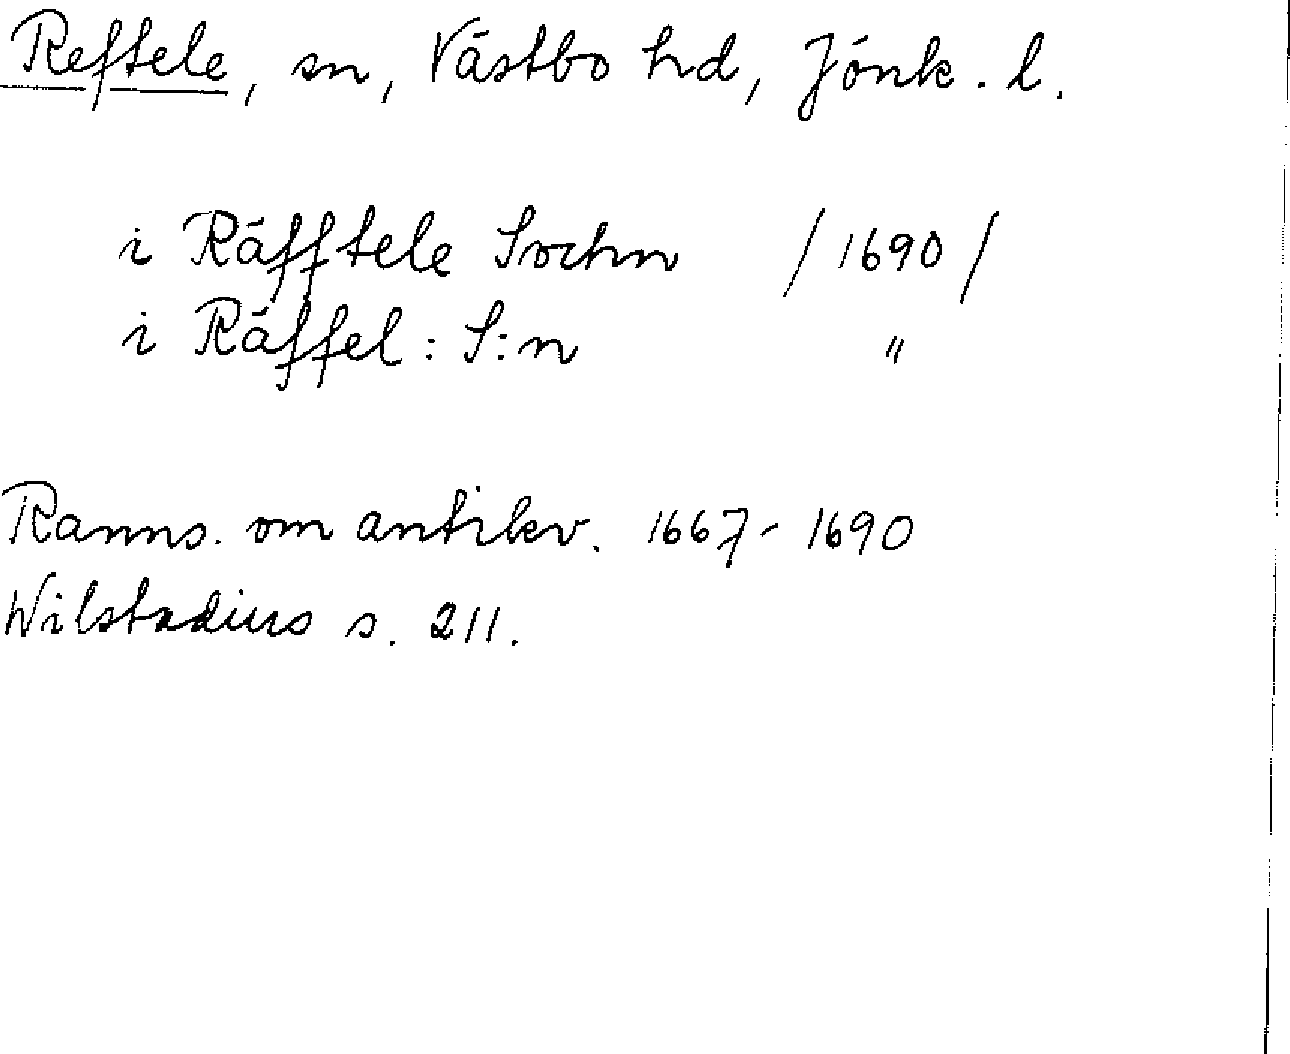 Reftele, sn, Västbo hd, Jönk. l.
i Räfftele Sochn /1690/
i Räffel: S:n "
Ranns. om antikv. 1667-1690
Wilstadius s. 211.